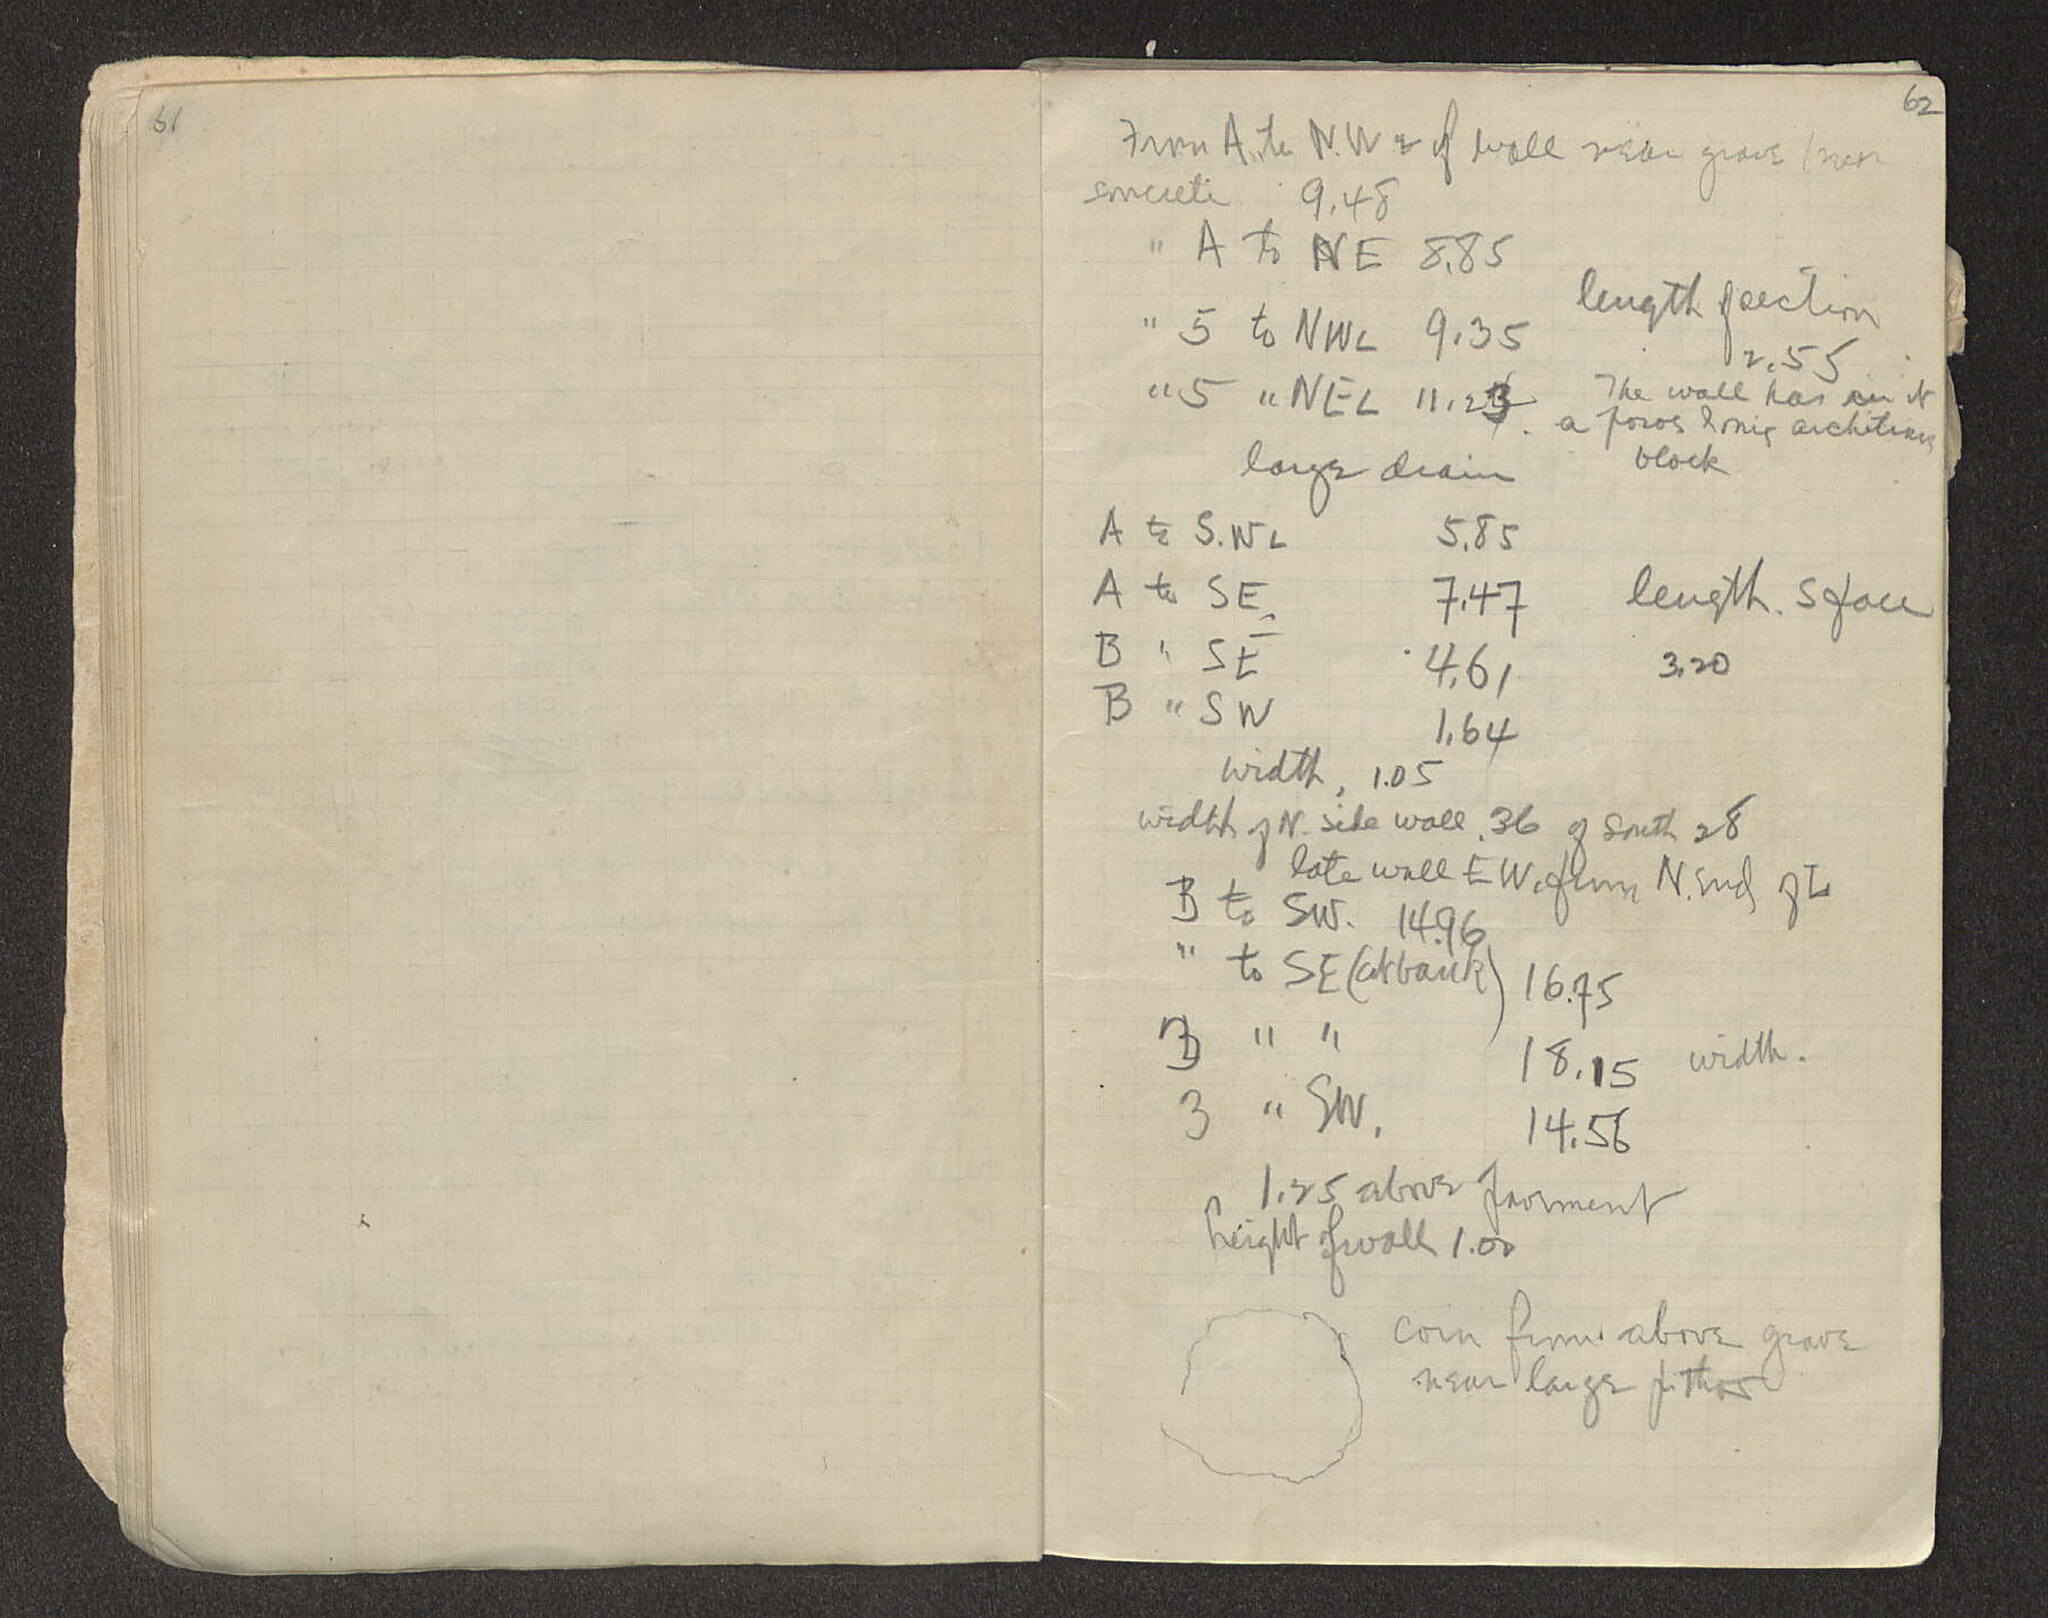 61
62
From A to N.W of wall near grave (near
concrete 9.48
" A to NE 8.85
" 5 to NWL 9.35
length section
2.55
" 5 " NEL 11.23
The wall has in it
a poros Ionic architrave
block
large drain
A to S.WL 5.85
A to SE 7.47 length. S face
B " SE 4.61 3.20
B " SW 1.64
width, 1.05
width of N. side wall .36 of South 28
late wall E W. from N. end of L
B to SW. 14.96
" to SE (at bank) 16.75
3 " " 18.15 width.
3 " SW. 14.56
1.25 above pavement
height of wall 1.00
coin from above grave
near large pithos